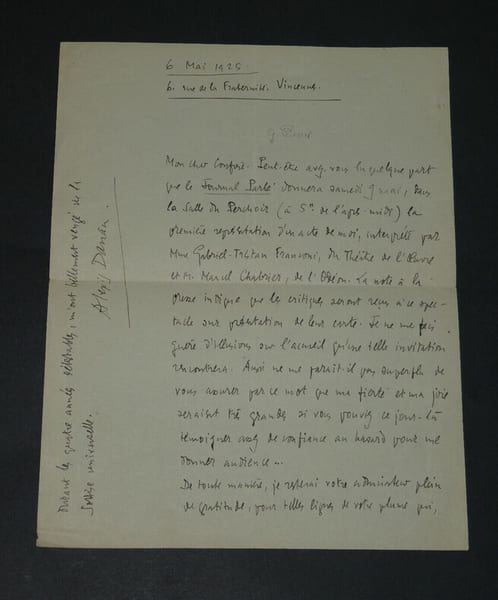 6 Mai 1925.
6. rue de la Fraternité. Vincennes.
Mon cher Confrère. Peut-être avez-vous lu quelque part
que le Journal Parlé donnera samedi 9 mai, dans
la Salle du Perchoir (à 5h. de l'après-midi) la
première représentation d'un acte de moi, interprété par
Mme Gabriel-Tristan Franconi, du Théâtre de l'Œuvre
et M. Marcel Chabrier, de l'Odéon. La note à la
presse indique que les critiques seront reçus à ce spec-
tacle sur présentation de leur carte. Je ne me fais
guère d'illusions sur l'accueil qu'une telle invitation
rencontrera. Aussi ne me paraît-il pas superflu de
vous assurer par ce mot que ma fierté et ma joie
seraient très grandes si vous pouviez ce jour-là
témoigner assez de confiance au hasard pour me
donner audience...
De toute manière, je resterai votre admirateur plein
de gratitude, pour telles lignes de votre plume qui,
Durant les quatre années détestables, m'ont tellement vengé de la
Sottise universelle.
Alexis Danan.